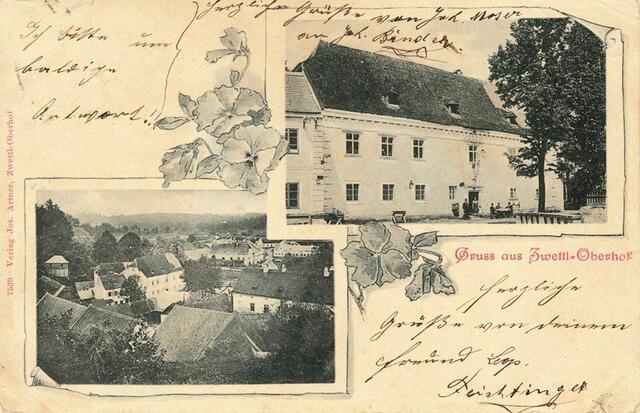 Herzliche Grüße von Joh. Moser
an Joh. Binder
Ich bitte um
baldige
Antwort!!
Gruss aus Zwettl-Oberhof
herzliche
Grüße von deinem
freund Leop.
Feichtinger
7539 Verlag Jos. Artner, Zwettl-Oberhof